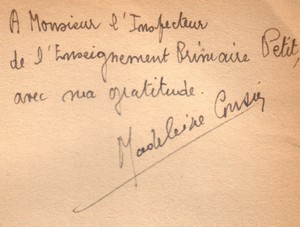 A Monsieur l'Inspecteur
de l'Enseignement Primaire Petit,
avec ma gratitude.
Madeleine